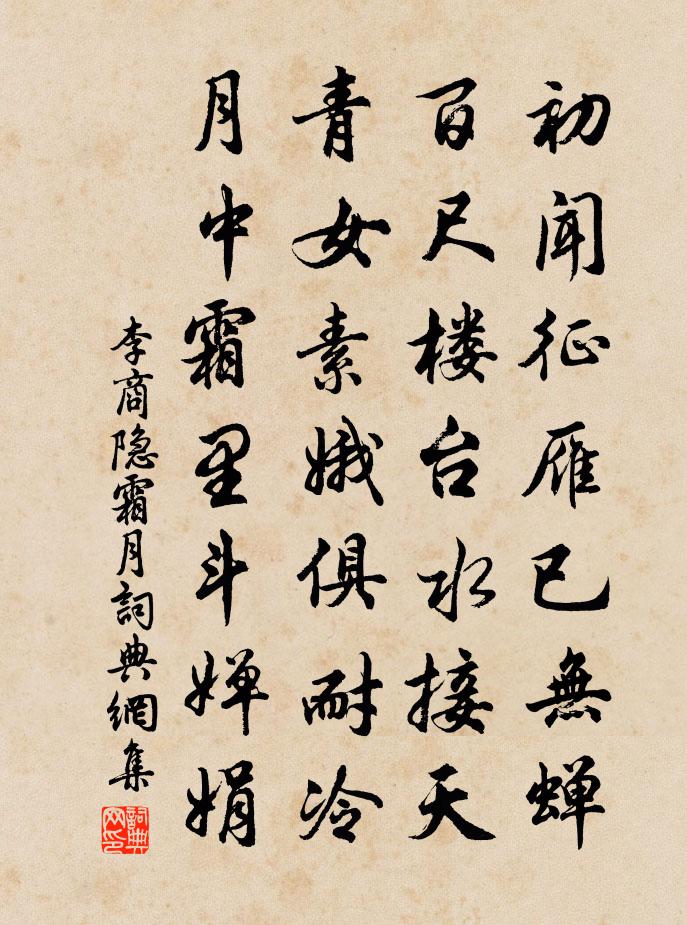 初闻征雁已無蝉
百尺楼台水接天
青女素娥俱耐冷
月中霜里斗婵娟
李商隐霜月詞典網集
詞典网印